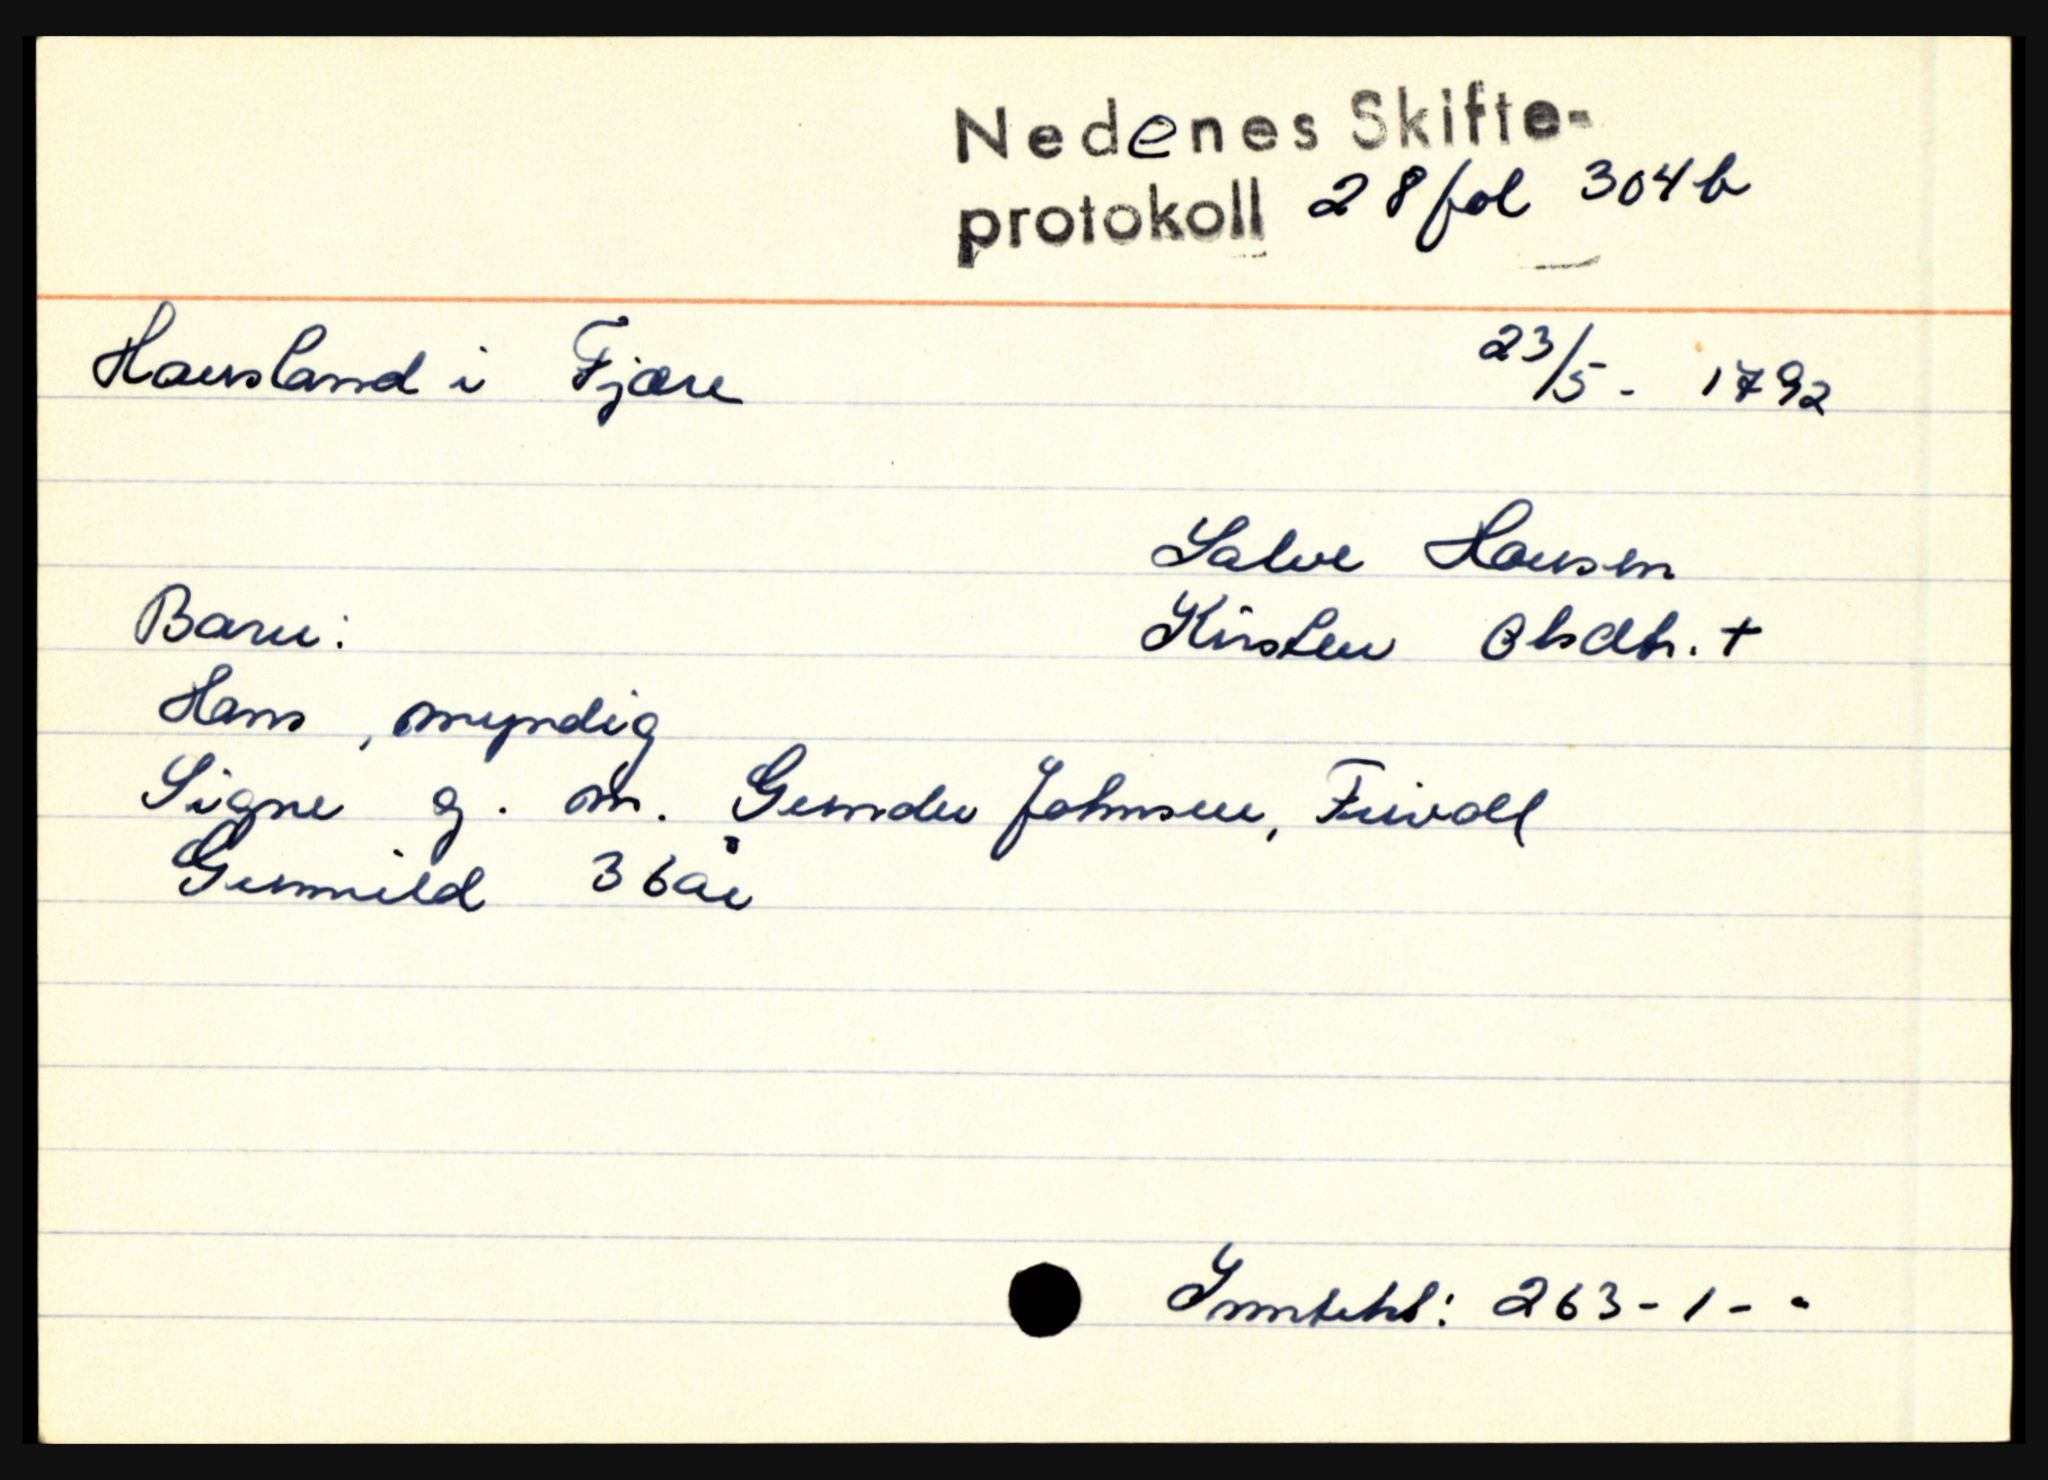 Nedenes Skifte-
protokoll 28 fol 304b
Hausland i Fjære 23/5 - 1792
Salve Hansen
Barn: Kirsten Olsdtr. +
Hans, myndig
Signe g. m. Gunder Johnsen, Frivoll
Gunnild 36 år
263-1--